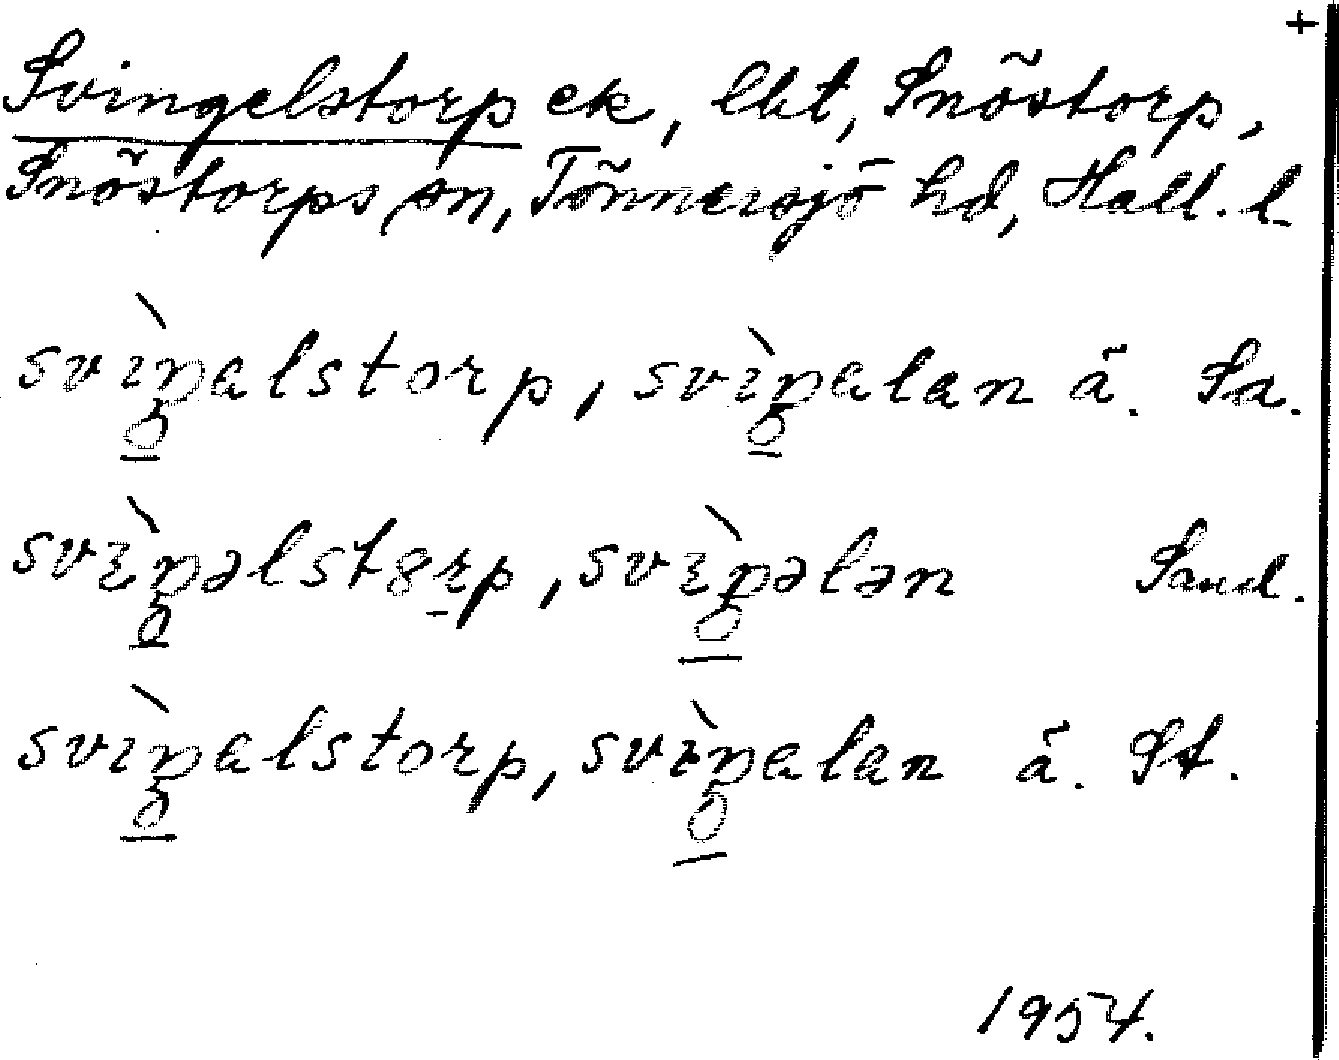 +
Svingelstorp ek, lht, Snöstorp,
Snöstorps sn, Tönnersjö hd, Hall. l.
svìŋalstorp, svìŋalan ä. Sa.
svìŋəlstɞrp, svìŋələn Sand.
svìŋalstorp, svìŋalan ä. St.
1954.